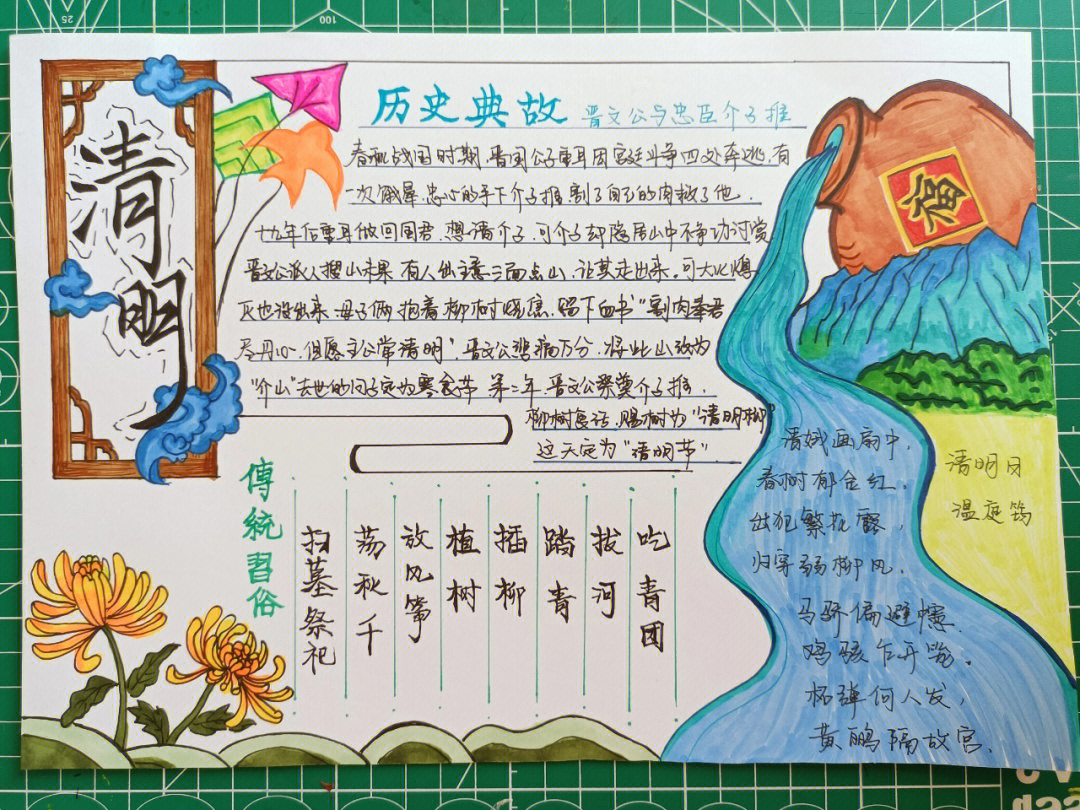 清明
历史典故 晋文公与忠臣介子推
春秋战国时期,晋国公子重耳因宫廷斗争四处奔逃,有
一次饿晕,忠心的手下介子推,割了自己的肉救了他.
十九年后重耳做回国君,想请介子,可介子却隐居山中不争功讨赏
晋文公派人搜山未果,有人出主意三面点山,让其走出来。可大火熄
灭也没出来.母子俩抱着柳树烧焦.留下血书“割肉奉君
尽丹心,但愿主公常清明”,晋文公悲痛万分.将此山改为
“介山”去世的日子定为寒食节 第二年,晋文公祭奠介子推.
柳树复活.赐树为“清明柳”
这天定为“清明节”
傳統習俗
扫墓祭祀
荡秋千
放风筝
植树
插柳
踏青
拔河
吃青团
福
清明日
温庭筠
清娥画扇中,
春树郁金红.
出犯繁花露,
归穿弱柳风.
马骄偏避幰.
鸡骇乍开笼.
柘弹何人发,
黄鹂隔故宫.